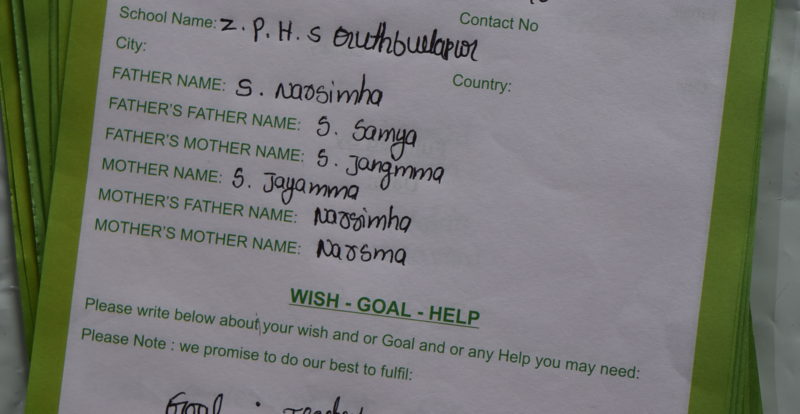 School Name: Z.P.H.S Eruthbuwlapur Contact No
City: Country:
FATHER NAME: S. Narsimha
FATHER'S FATHER NAME: S. Samya
FATHER'S MOTHER NAME: S. Jangmma
MOTHER NAME: S. Jayamma
MOTHER'S FATHER NAME: Narsimha
MOTHER'S MOTHER NAME: Narsma
WISH - GOAL - HELP
Please write below about your wish and or Goal and or any Help you may need:
Please Note : we promise to do our best to fulfil:
Goal :